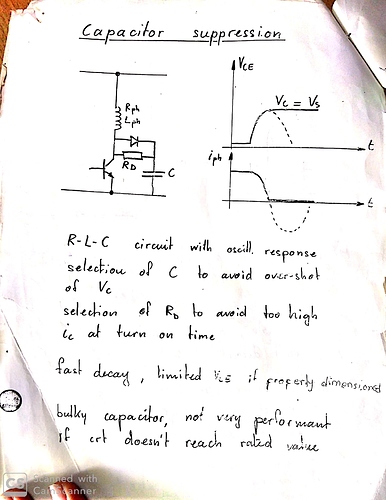 Capacitor suppression
VCE
Rph
Lph
VC = VS
t
RD
C
iph
t
R-L-C circuit with oscill. response
selection of C to avoid over-shot
of Vc
selection of RD to avoid too high
ic at turn on time
fast decay, limited VCE if property dimensioned
bulky capacitor, not very performant
if crt doesn't reach rated value
CS Scanned with
CamScanner